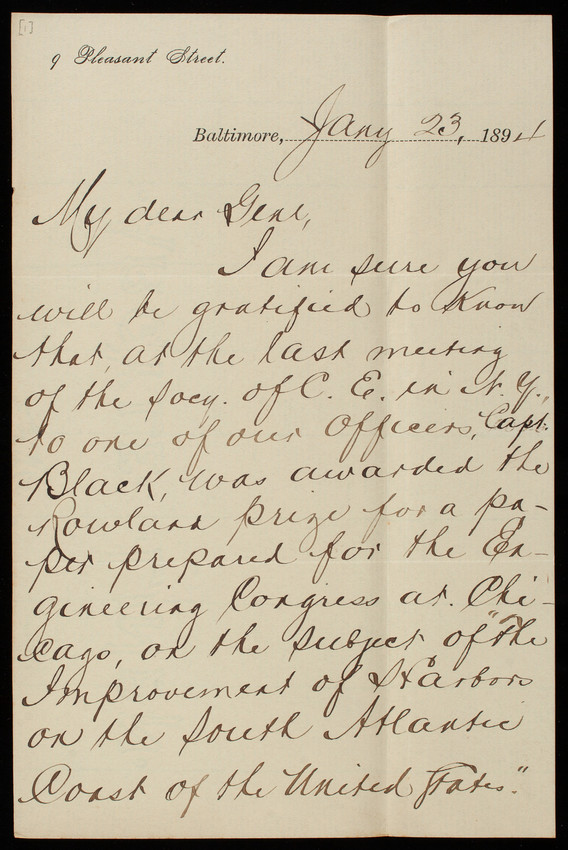 [1]
9 Pleasant Street.
Baltimore, Jany 23, 1894
My dear Genl,
I am sure you
will be gratified to know
that, at the last meeting
of the Socy. of C. E. in N. Y.,
to one of our Officers, Capt.
Black, was awarded the
Rowland prize for a pa-
per prepared for the En-
gineering Congress at Chi-
cago, on the subject of "the
Improvement of Harbors
on the South Atlantic
Coast of the United States."